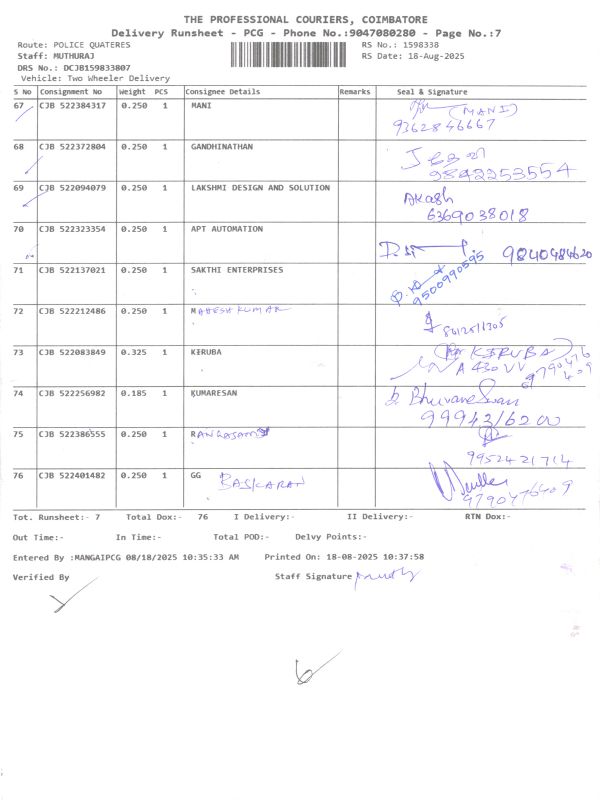 THE PROFESSIONAL COURIERS, COIMBATORE
Delivery Runsheet - PCG - Phone No.:9047080280 - Page No.:7
Route: POLICE QUATERES RS No.: 1598338
Staff: MUTHURAJ RS Date: 18-Aug-2025
DRS No.: DCJB159833807
Vehicle: Two Wheeler Delivery
S No Consignment No Weight PCS Consignee Details Remarks Seal & Signature
67 CJB 522384317 0.250 1 MANI (MANI)
9362846667
68 CJB 522372804 0.250 1 GANDHINATHAN
9842253554
69 CJB 522094079 0.250 1 LAKSHMI DESIGN AND SOLUTION Akash
6369038018
70 CJB 522323354 0.250 1 APT AUTOMATION
9840484620
71 CJB 522137021 0.250 1 SAKTHI ENTERPRISES
9500990595
72 CJB 522212486 0.250 1 MAHESH KUMAR
73 CJB 522083849 0.325 1 KIRUBA KIRUBA
74 CJB 522256982 0.185 1 KUMARESAN b. Bhuvaneswari
9994316200
75 CJB 522386555 0.250 1 RANGASAMY
9952421714
76 CJB 522401482 0.250 1 GG BASKARAN
9790476409
Tot. Runsheet:- 7 Total Dox:- 76 I Delivery:- II Delivery:- RTN Dox:-
Out Time:- In Time:- Total POD:- Delvy Points:-
Entered By :MANGAIPCG 08/18/2025 10:35:33 AM Printed On: 18-08-2025 10:37:58
Verified By Staff Signature